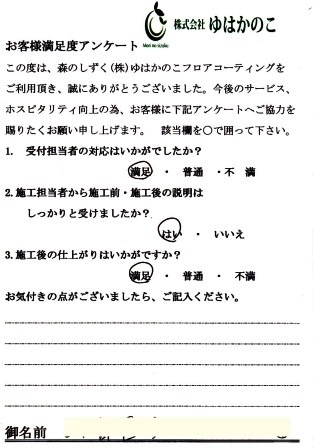 株式会社 ゆはかのこ
Mori no sizuku
お客様満足度アンケート
この度は、森のしずく(株)ゆはかのこフロアコーティングを
ご利用頂き、誠にありがとうございました。今後のサービス、
ホスピタリティ向上の為、お客様に下記アンケートへご協力を
賜りたくお願い申し上げます。 該当欄を○で囲って下さい。
1. 受付担当者の対応はいかがでしたか?
満足 ・ 普通 ・不 満
2.施工担当者から施工前・施工後の説明は
しっかりと受けましたか?
はい ・ いいえ
3.施工後の仕上がりはいかがですか?
満足 ・ 普通 ・ 不満
お気付きの点がございましたら、ご記入ください。
御名前